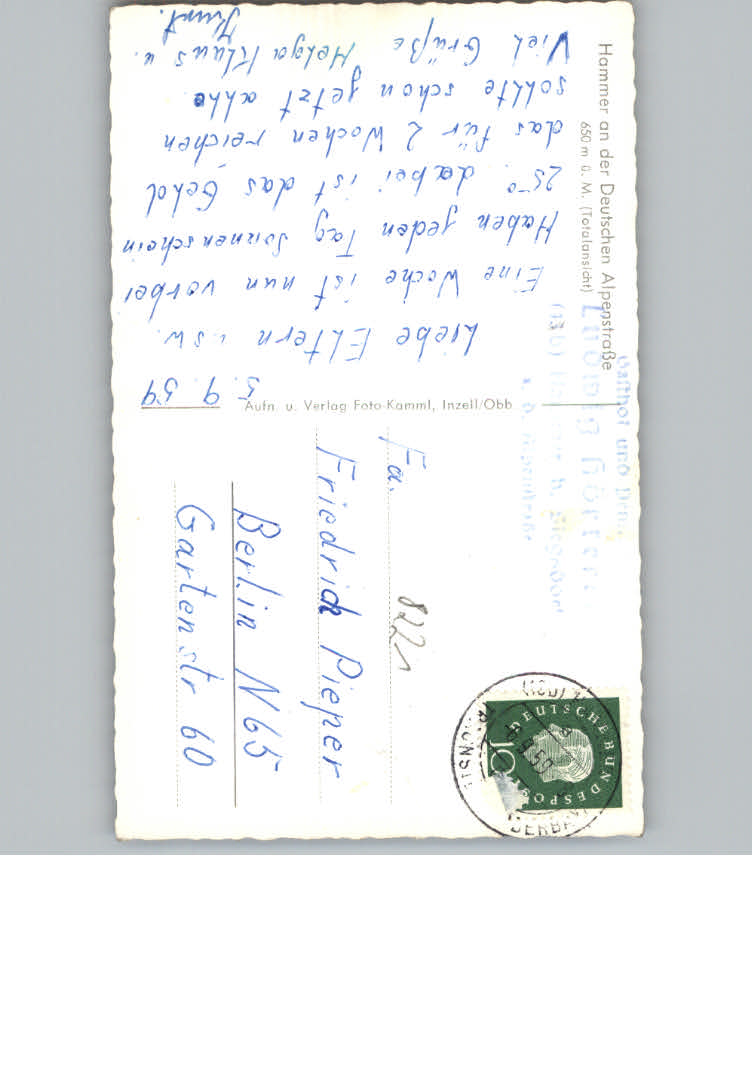 Hammer an der Deutschen Alpenstraße
650 m ü. M. (Totalansicht)
5. 9. 59
Liebe Eltern usw.
Eine Woche ist nun vorbei
Haben jeden Tag Sonnenschein
25° dabei ist das Gehol
das für 2 Wochen reichen
sollte schon jetzt ahhe.
Viel Grüße Helga Klaus u.
Aufn. u. Verlag Foto-Kamml, Inzell/Obb
Gasthof und
Ludwig
DEUTSCHE BUNDESPOST
10
8221
Fa.
Friedrich Pieper
Berlin N65
Gartenstr 60